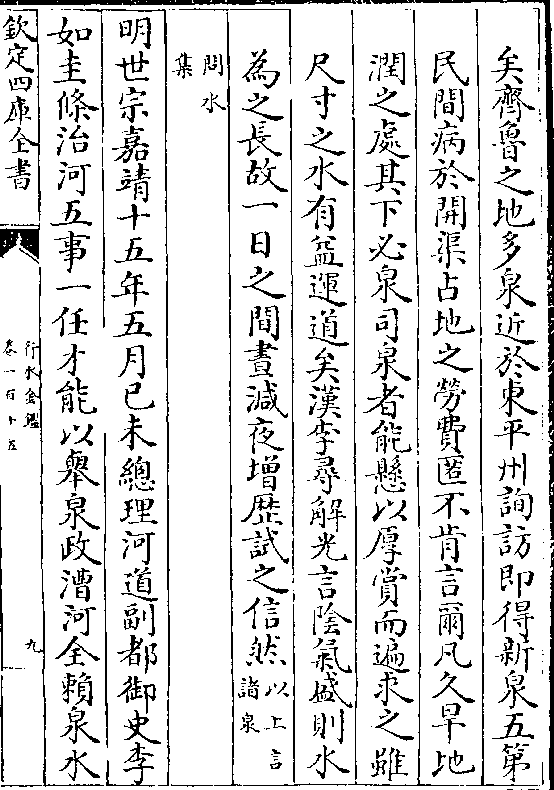 矣齊魯之地多泉近於東平州詢訪即得新泉五第
民間病於開渠占地之勞費匿不肯言爾凡久旱地
潤之處其下必泉司泉者能懸以厚賞而遍求之雖
尺寸之水有益運道矣漢李尋解光言陰氣盛則水
為之長故一日之間晝減夜增歴試之信然以上言諸泉
問水集
明世宗嘉靖十五年五月己未總理河道副都御史李
如圭條治河五事一任才能以舉泉政漕河全賴泉水
欽定四庫全書
行水金鑑
卷一百十五
九